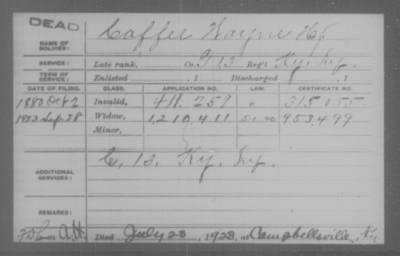 DEAD
NAME OF SOLDIER: Caffee Wayne
SERVICE: Late rank, Co. F 13 Reg't Ky. Inf.
TERM OF SERVICE: Enlisted , 1 Discharged , 1
DATE OF FILING. CLASS. APPLICATION NO. LAW. CERTIFICATE NO.
1880 Oct 2 Invalid, 411.259 315155
Sep. 28 Widow, 1,210,411 953,499
Minor,
ADDITIONAL SERVICES: C, 13, Ky. Inf.
REMARKS:
Died July 23, 1923, at Campbellsville, Ky.